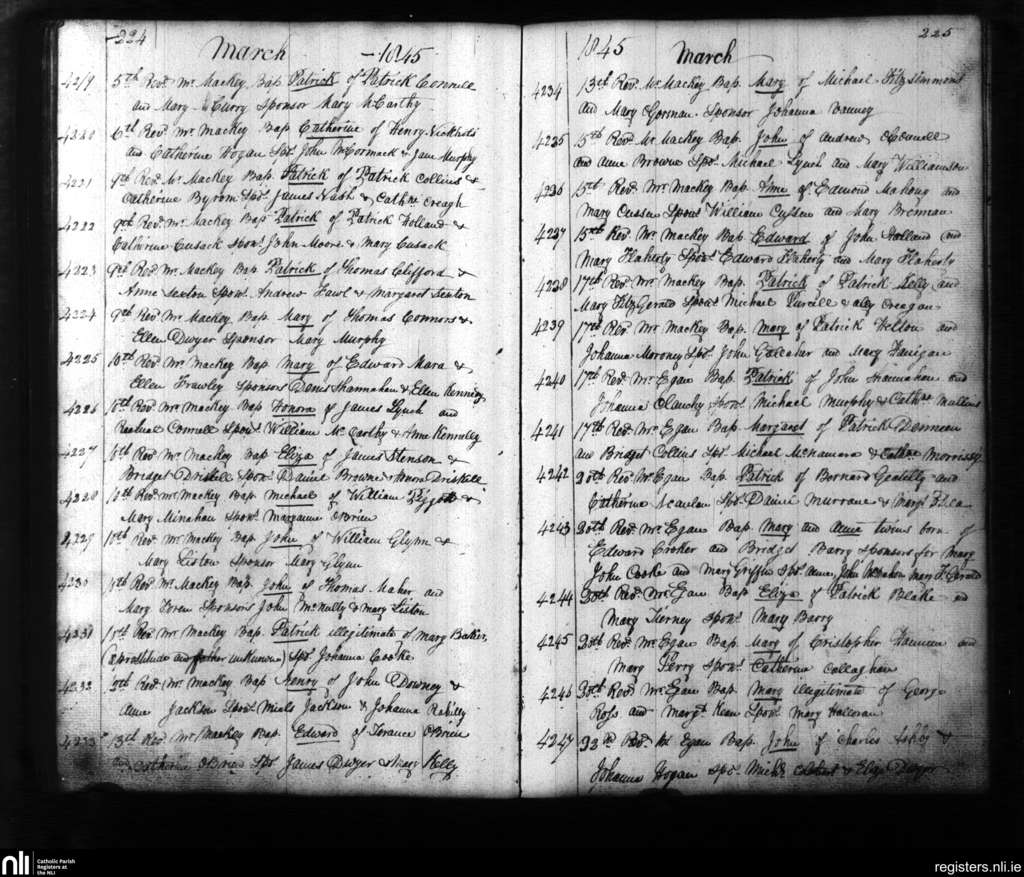 224
March 1845
4219 5th Revd. Mr. Mackey Bap Patrick of Patrick Connell
and Mary Curry Sponsor Mary McCarthy
4220 6th Revd. Mr. Mackey Bap Catherine of Henry
and Catherine Hogan Sps. John McCormack & Jane Murphy
4221 9th Revd. Mr. Mackey Bap. Patrick of Patrick Collins &
Catherine Byrom Sps. James Nash & Cathne Creagh
4222 9th Revd. Mr. Mackey Bap Patrick of Patrick Holland &
Catherine Cusack Spons. John Moore & Mary Cusack
4223 9th Revd Mr. Mackey Bap. Patrick of Thomas Clifford &
Anne Sexton Spons. Andrew Fawl & Margaret Sexton
4224 9th Revd Mr. Mackey Bap. Mary of Thomas Connors &
Ellen Dwyer Sponsor Mary Murphy
4225 10th Revd Mr. Mackey Bap Mary of Edward Mara &
Ellen Frawley Sponsors Denis Shannahan & Ellen
4226 10th Revd. Mr. Mackey Bap Honora of James Lynch and
Connell Spons. William McCarthy & Anne Kennelly
4227 10th Revd. Mr. Mackey Bap Eliza of James Stenson &
Bridget Driskill Spons. Daniel Browne & Honora Driskill
4228 10th Revd. Mr Mackey Bap Michael of William Piggott &
Mary Minahan Spons. Maryanne OBrien
4229 10th Revd. Mr. Mackey Bap John of William Glynn &
Mary Liston Sponsor Mary Glynn
4230 10th Revd Mr. Mackey Bap. John of Thomas Maher and
Mary Sponsors John McNully & Mary Liston
4231 10th Revd Mr. Mackey Bap. Patrick illegitimate of Mary Baker
(a prostitute and father unknown) Sps. Johanna Cooke
4232 Revd. Mr. Mackey Bap Henry of John Downey &
Anne Jackson Spons. Jackson & Johanna Reilly
4233 13th Revd Mr. Mackey Bap. Edward of Terance OBrien
Catherine OBrien Sps. James Dwyer & Mary Kelly
225
1845 March
4234 13th Revd. Mr. Mackey Bap. Mary of Michael Fitzsimmons
and Mary Gorman Sponsor Johanna
4235 15th Revd Mr. Mackey Bap. John of Andrew OConnell
and Anne Browne Spos. Michael Lynch and Mary Williamson
4236 15th Revd. Mr. Mackey Bap Anne of Edmond Mahony and
Mary Cussen Spons William Cussen and Mary Brennan
4237 15th Revd Mr. Mackey Bap. Edward of John Holland and
Mary Flaherty Spons. Edward Flaherty and Mary Flaherty
4238 17th Revd. Mr. Mackey Bap. Patrick of Patrick Kelly and
Mary FitzGerald Spons. Michael Purcill & Creagan
4239 17th Revd. Mr Mackey Bap. Mary of Patrick and
Johanna Moroney Sps. John Gallaher and Mary Hanigan
4240 17th Revd. Mr. Egan Bap. Patrick of John Shannahan and
Johanna Clanchy Spons. Michael Murphy & Cathne Mullins
4241 17th Revd. Mr. Egan Bap Margaret of Patrick Denneen
and Bridget Collins Sps. Michael McNamara & Cathne Morrissy
4242 20th Revd Mr Egan Bap Patrick of Bernard Geatelly and
Catherine Scanlan Sps. Daniel Murrane & Margt.
4243 20th Revd. Mr. Egan Bap. Mary and Anne twins born of
Edward Croker and Bridget Barry Sponsors for Mary
John Cooke and Mary Griffin Sps. Anne, John McMahon Mary FGerald
4244 20th Revd. Mr. Egan Bap Eliza of Patrick Blake and
Mary Tierney Spons. Mary Barry
4245 Revd. Mr. Egan Bap. Mary of Cristopher and
Mary Perry Spons. Catherine Callaghan
4246 Revd Mr. Egan Bap Mary illegitimate of George
Ross and Margt Kean Spons. Mary Halloran
4247 Revd. Mr Egan Bap. John of Charles &
Johanna Hogan Spos. Michl & Eliza Dwyer
nli Catholic Parish
Registers at
the NLI
registers.nli.ie